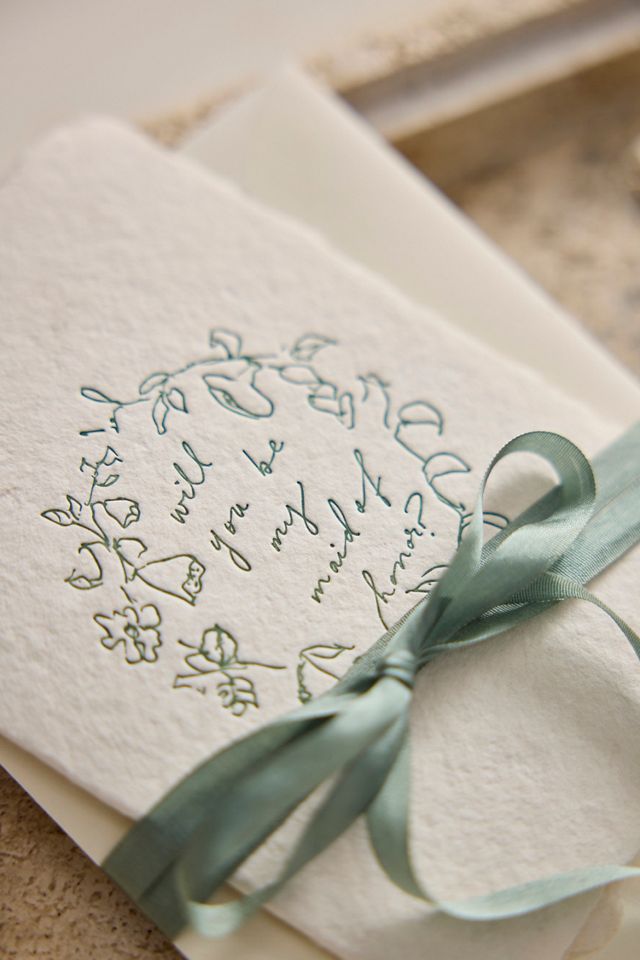 will
you be
my
maid of
honor?